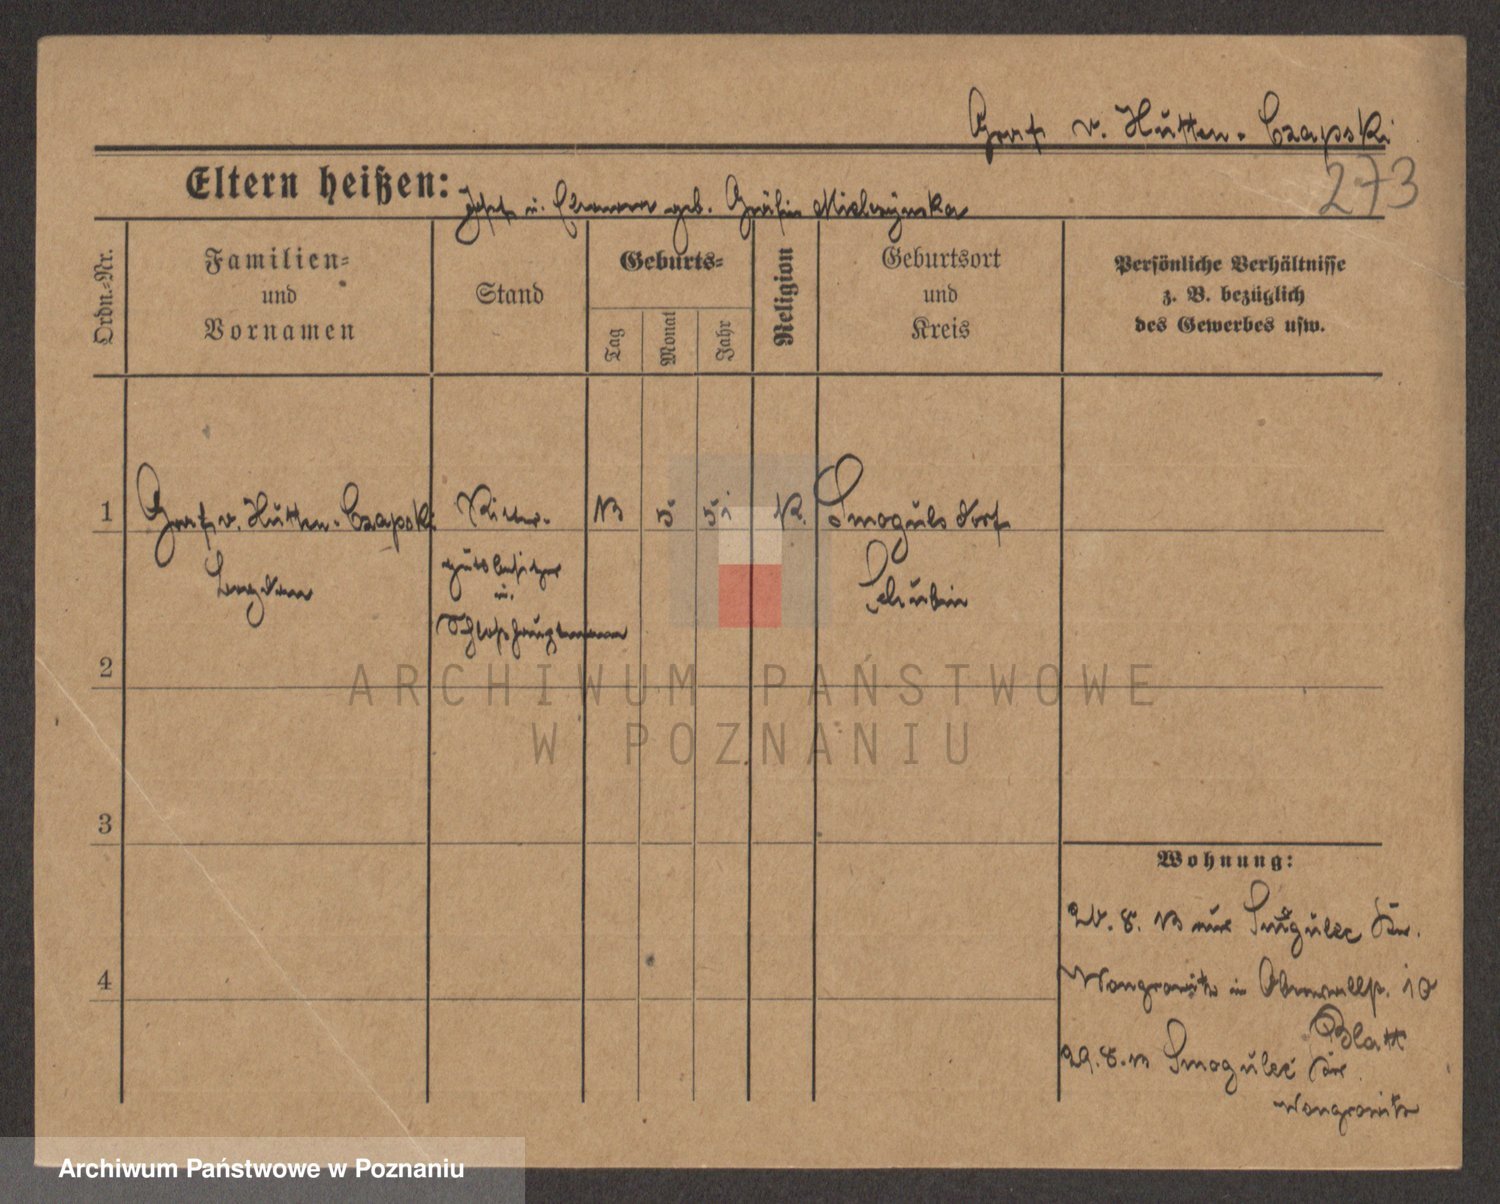 Graf v. Hutten-Czapski
273
Eltern heißen: Josef u. Eleonora geb. Gräfin Mielzynska
Ordn.-Nr.
Familien-
und
Vornamen
Stand
Geburts-
Tag
Monat
Jahr
Religion
Geburtsort
und
Kreis
Persönliche Verhältnisse
z. B. bezüglich
des Gewerbes usw.
1
Graf v. Hutten-Czapski
Bogdan
Ritter-
gutsbesitzer
u.
Schloßhauptmann
13
5
51
K.
Smogulsdorf
Schubin
2
3
4
Wohnung:
8. 13 aus Smogulec Kr.
Wongrowitz in 10
Blatt
29. 8. 13 Smogulec Kr.
Wongrowitz
ARCHIWUM PAŃSTWOWE
W POZNANIU
Archiwum Państwowe w Poznaniu